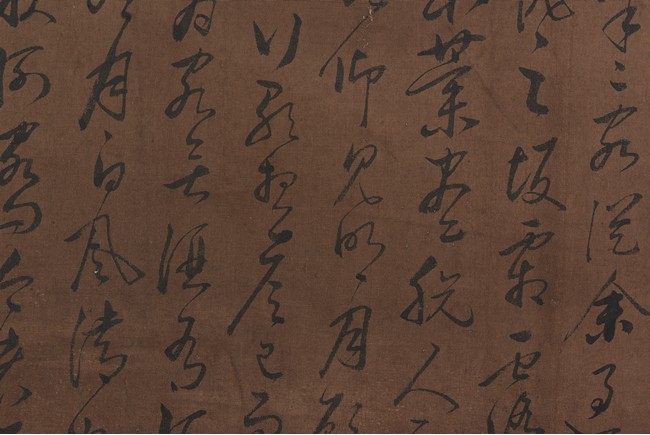 二客從余過
泥之坂霜露既
木葉盡脫人
仰見明月顧
行歌相答已而
有客無酒有酒
月白風清如
何客曰今者